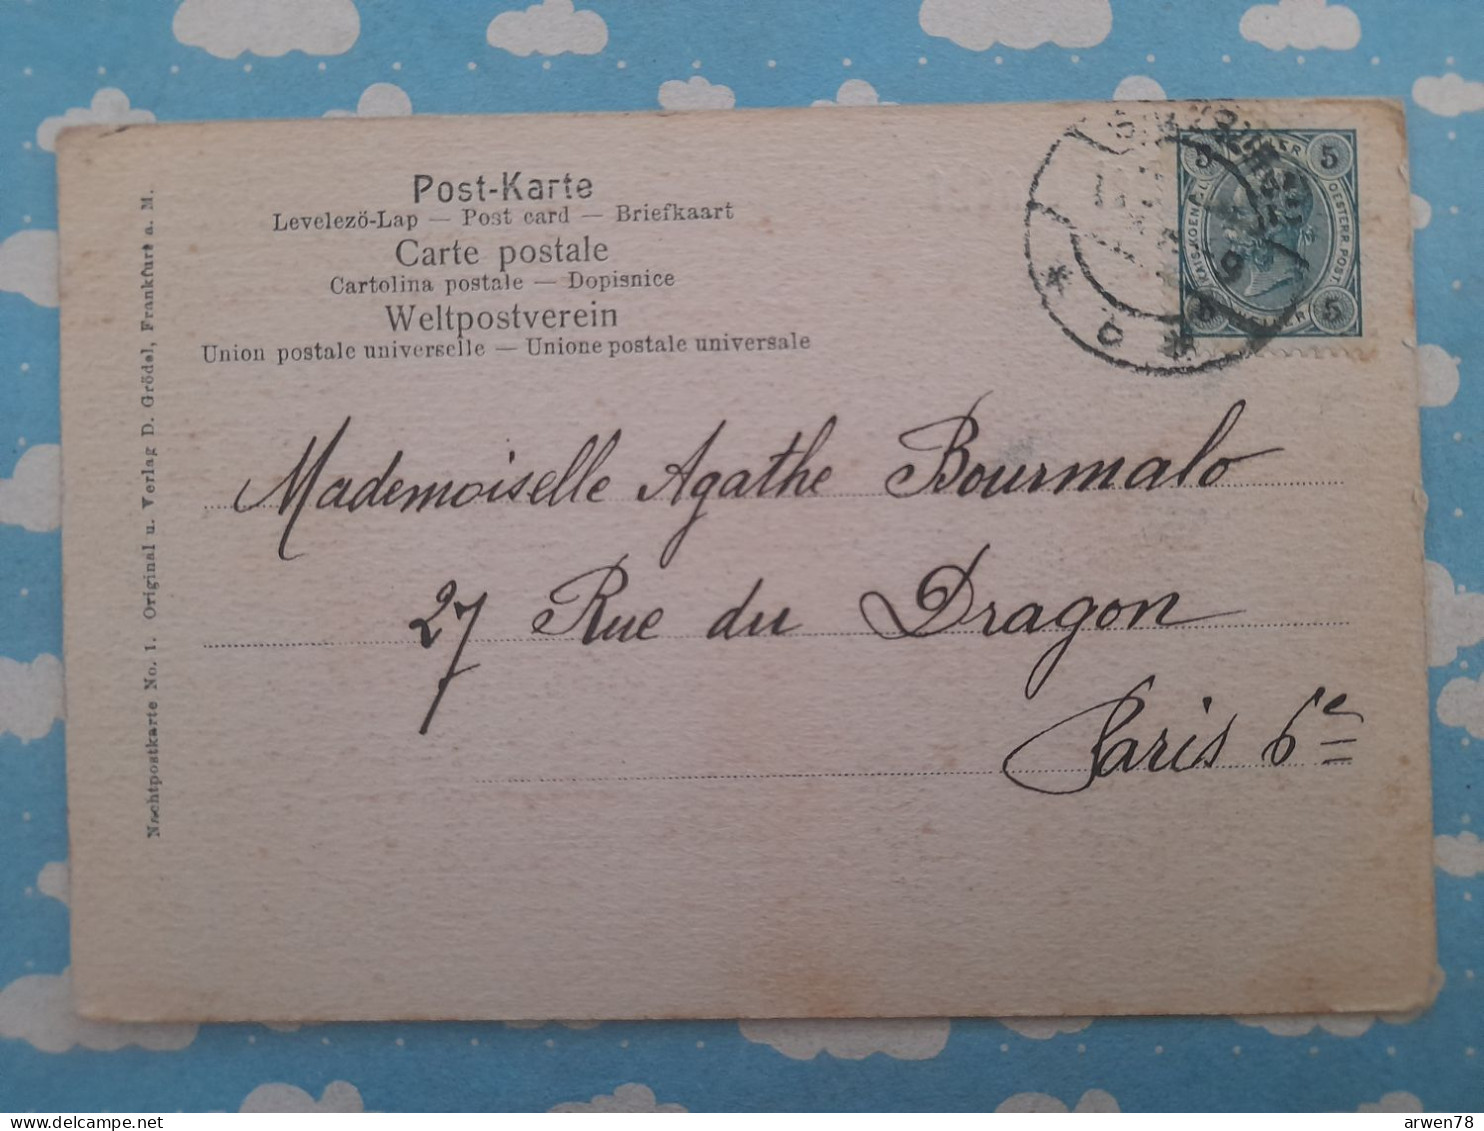 Post-Karte
Levelezö-Lap — Post card — Briefkaart
Carte postale
Cartolina postale — Dopisnice
Weltpostverein
Union postale universelle — Unione postale universale
Nachtpostkarte No. 1. Original u. Verlag D. Grödel, Frankfurt a. M.
5 HELLER 5
KAIS. KOENIGL. OESTERR. POST
5 HELLER 5
Mademoiselle Agathe Bourmalo
27 Rue du Dragon
Paris 6e
delcampe.net
arwen78